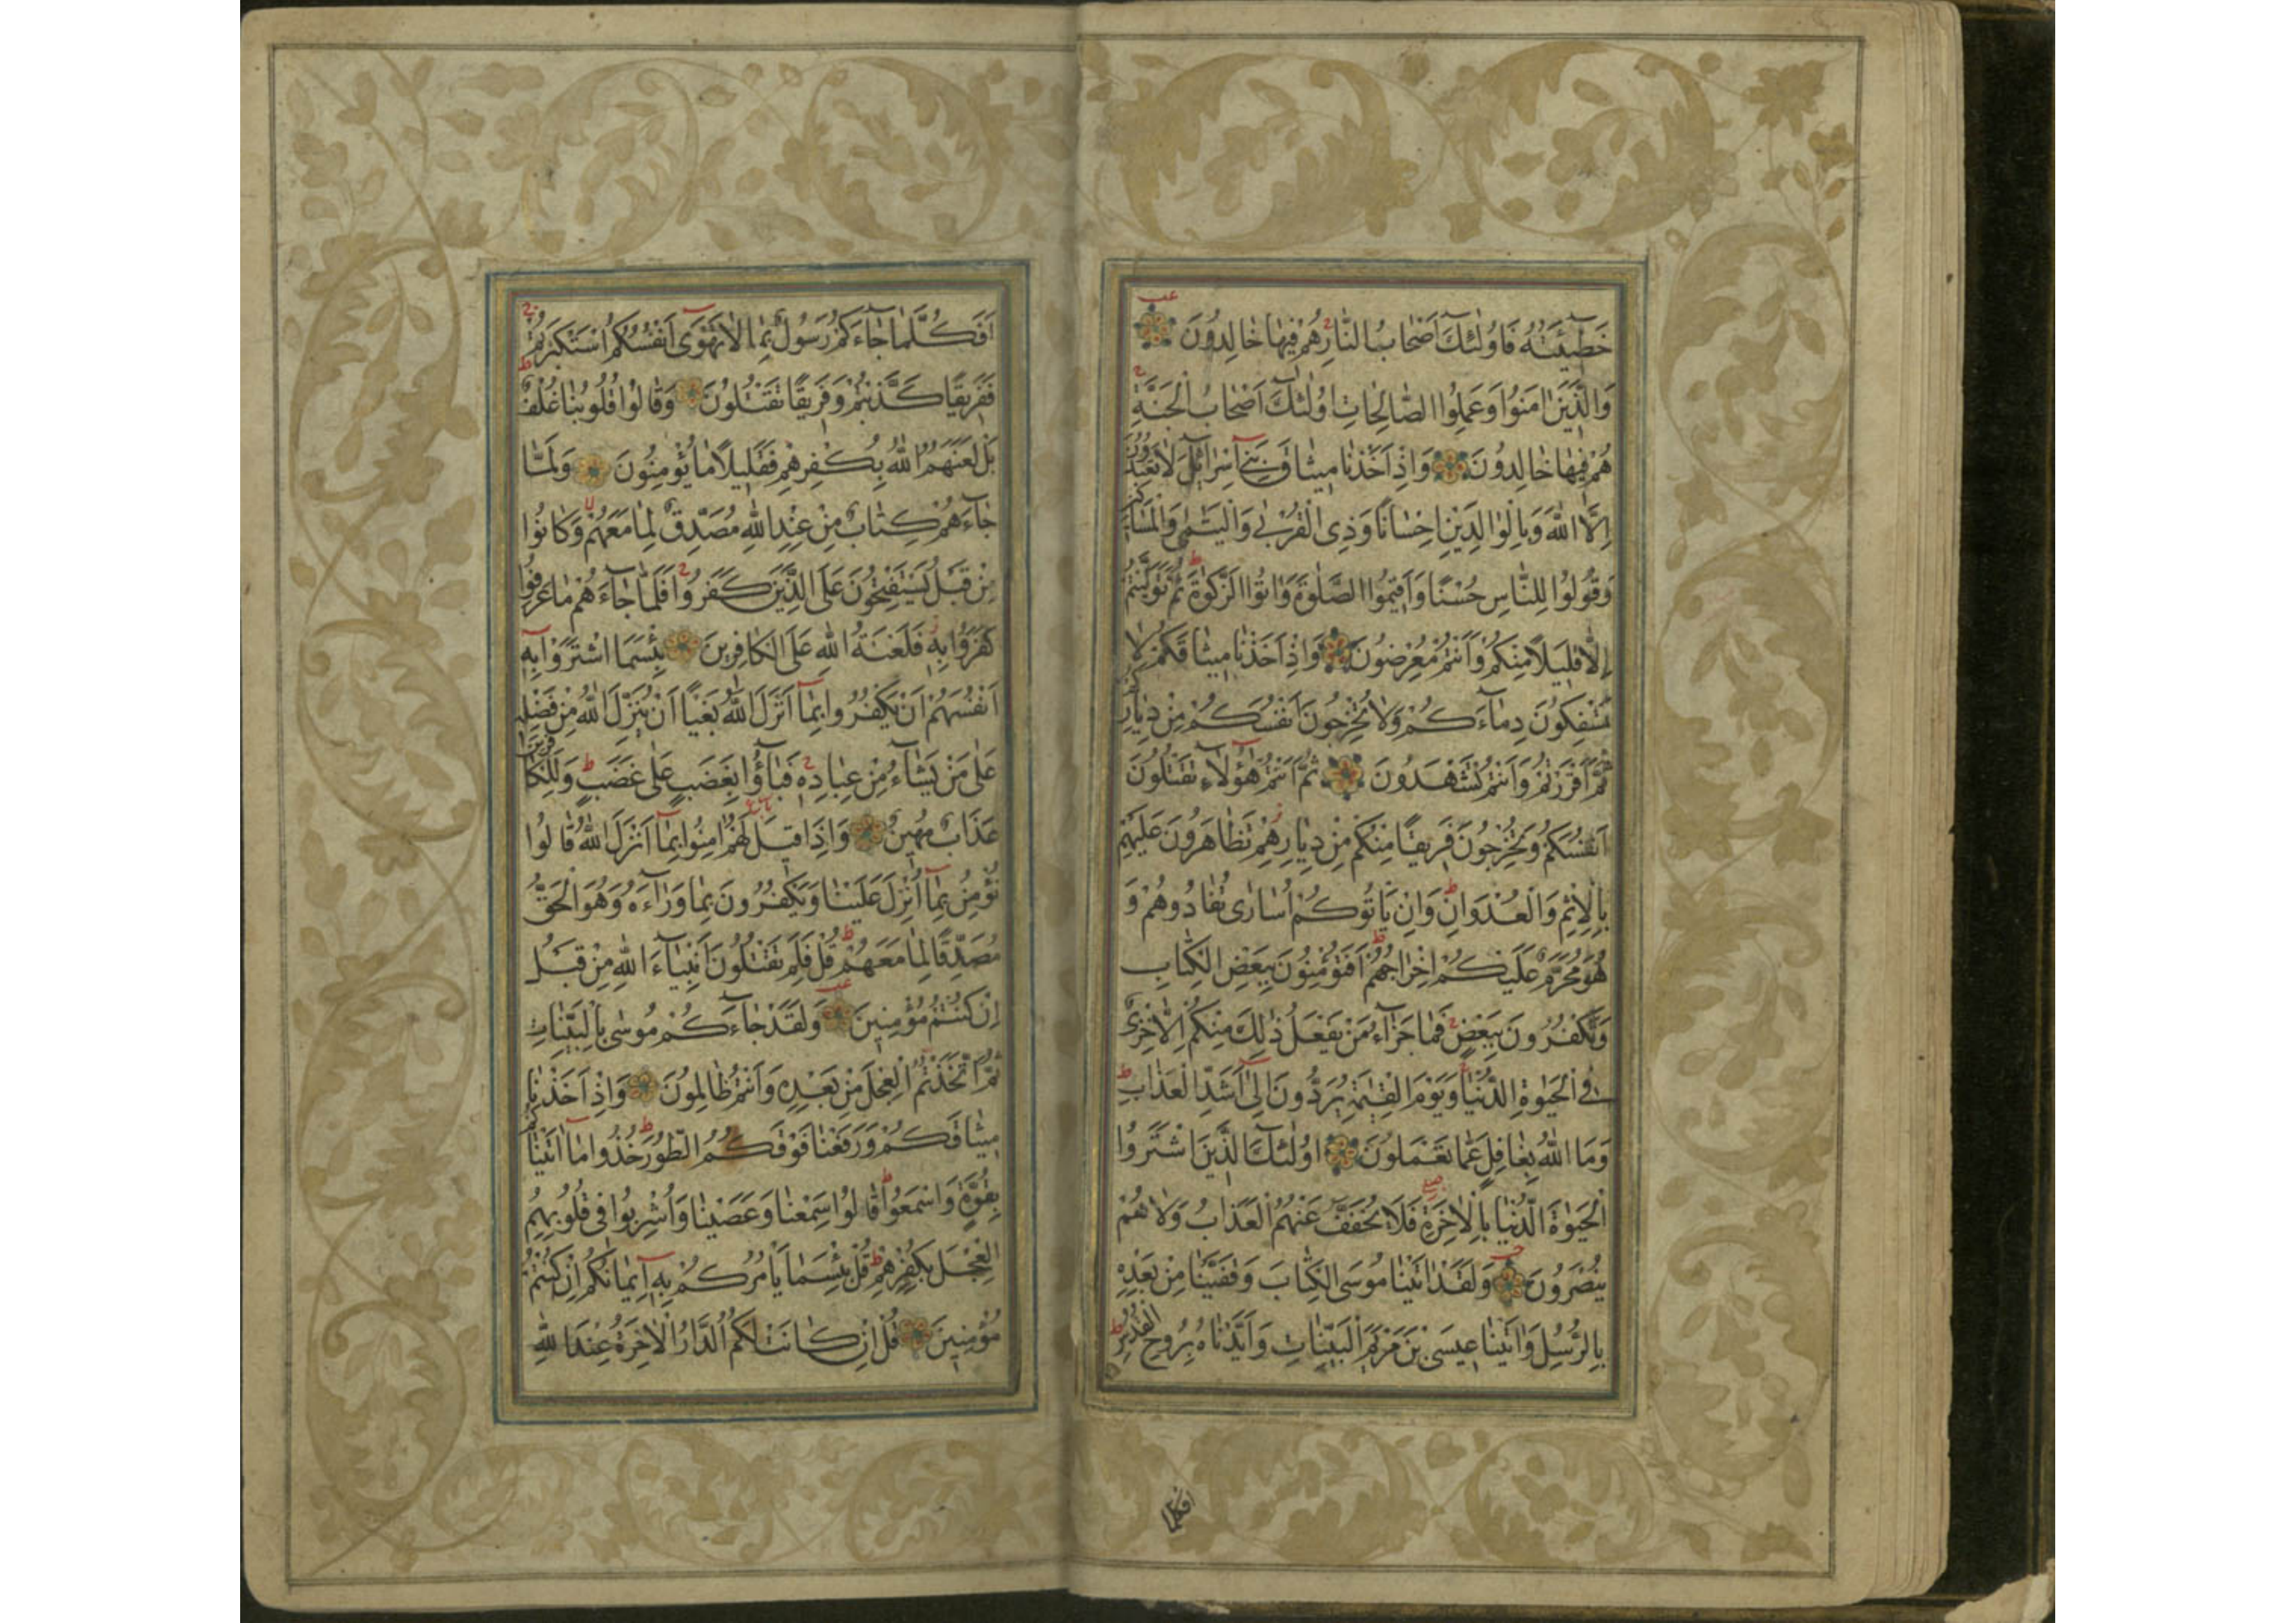 خَطِيئَتُهُ فَاُولٰئِكَ اَصْحَابُ النَّارِ هُمْ فِيهَا خَالِدُونَ
وَالَّذِينَ اٰمَنُوا وَعَمِلُوا الصَّالِحَاتِ اُولٰئِكَ اَصْحَابُ الْجَنَّةِ
هُمْ فِيهَا خَالِدُونَ وَاِذْ اَخَذْنَا مِيثَاقَ بَنِي اِسْرَائِلَ لَا تَعْبُدُونَ
اِلَّا اللّٰهَ وَبِالْوَالِدَيْنِ اِحْسَانًا وَذِي الْقُرْبٰى وَالْيَتَامٰى وَالْمَسَاكِينِ
وَقُولُوا لِلنَّاسِ حُسْنًا وَاَقِيمُوا الصَّلٰوةَ وَاٰتُوا الزَّكٰوةَ ثُمَّ تَوَلَّيْتُمْ
اِلَّا قَلِيلًا مِنْكُمْ وَاَنْتُمْ مُعْرِضُونَ وَاِذْ اَخَذْنَا مِيثَاقَكُمْ لَا
تَسْفِكُونَ دِمَاءَكُمْ وَلَا تُخْرِجُونَ اَنْفُسَكُمْ مِنْ دِيَارِكُمْ
ثُمَّ اَقْرَرْتُمْ وَاَنْتُمْ تَشْهَدُونَ ثُمَّ اَنْتُمْ هٰؤُلَاءِ تَقْتُلُونَ
اَنْفُسَكُمْ وَتُخْرِجُونَ فَرِيقًا مِنْكُمْ مِنْ دِيَارِهِمْ تَظَاهَرُونَ عَلَيْهِمْ
بِالْاِثْمِ وَالْعُدْوَانِ وَاِنْ يَاْتُوكُمْ اُسَارٰى تُفَادُوهُمْ وَ
هُوَ مُحَرَّمٌ عَلَيْكُمْ اِخْرَاجُهُمْ اَفَتُؤْمِنُونَ بِبَعْضِ الْكِتَابِ
وَتَكْفُرُونَ بِبَعْضٍ فَمَا جَزَاءُ مَنْ يَفْعَلُ ذٰلِكَ مِنْكُمْ اِلَّا خِزْيٌ
فِي الْحَيٰوةِ الدُّنْيَا وَيَوْمَ الْقِيٰمَةِ يُرَدُّونَ اِلٰى اَشَدِّ الْعَذَابِ
وَمَا اللّٰهُ بِغَافِلٍ عَمَّا تَعْمَلُونَ اُولٰئِكَ الَّذِينَ اشْتَرَوُا
الْحَيٰوةَ الدُّنْيَا بِالْاٰخِرَةِ فَلَا يُخَفَّفُ عَنْهُمُ الْعَذَابُ وَلَا هُمْ
يُنْصَرُونَ وَلَقَدْ اٰتَيْنَا مُوسَى الْكِتَابَ وَقَفَّيْنَا مِنْ بَعْدِهِ
بِالرُّسُلِ وَاٰتَيْنَا عِيسَى بْنَ مَرْيَمَ الْبَيِّنَاتِ وَاَيَّدْنَاهُ بِرُوحِ الْقُدُسِ
افكلما
اَفَكُلَّمَا جَاءَكُمْ رَسُولٌ بِمَا لَا تَهْوٰى اَنْفُسُكُمُ اسْتَكْبَرْتُمْ
فَفَرِيقًا كَذَّبْتُمْ وَفَرِيقًا تَقْتُلُونَ وَقَالُوا قُلُوبُنَا غُلْفٌ
بَلْ لَعَنَهُمُ اللّٰهُ بِكُفْرِهِمْ فَقَلِيلًا مَا يُؤْمِنُونَ وَلَمَّا
جَاءَهُمْ كِتَابٌ مِنْ عِنْدِ اللّٰهِ مُصَدِّقٌ لِمَا مَعَهُمْ وَكَانُوا
مِنْ قَبْلُ يَسْتَفْتِحُونَ عَلَى الَّذِينَ كَفَرُوا فَلَمَّا جَاءَهُمْ مَا عَرَفُوا
كَفَرُوا بِهِ فَلَعْنَةُ اللّٰهِ عَلَى الْكَافِرِينَ بِئْسَمَا اشْتَرَوْا بِهِ
اَنْفُسَهُمْ اَنْ يَكْفُرُوا بِمَا اَنْزَلَ اللّٰهُ بَغْيًا اَنْ يُنَزِّلَ اللّٰهُ مِنْ فَضْلِهِ
عَلٰى مَنْ يَشَاءُ مِنْ عِبَادِهِ فَبَاؤُا بِغَضَبٍ عَلٰى غَضَبٍ وَلِلْكَافِرِينَ
عَذَابٌ مُهِينٌ وَاِذَا قِيلَ لَهُمْ اٰمِنُوا بِمَا اَنْزَلَ اللّٰهُ قَالُوا
نُؤْمِنُ بِمَا اُنْزِلَ عَلَيْنَا وَيَكْفُرُونَ بِمَا وَرَاءَهُ وَهُوَ الْحَقُّ
مُصَدِّقًا لِمَا مَعَهُمْ قُلْ فَلِمَ تَقْتُلُونَ اَنْبِيَاءَ اللّٰهِ مِنْ قَبْلُ
اِنْ كُنْتُمْ مُؤْمِنِينَ وَلَقَدْ جَاءَكُمْ مُوسٰى بِالْبَيِّنَاتِ
ثُمَّ اتَّخَذْتُمُ الْعِجْلَ مِنْ بَعْدِهِ وَاَنْتُمْ ظَالِمُونَ وَاِذْ اَخَذْنَا
مِيثَاقَكُمْ وَرَفَعْنَا فَوْقَكُمُ الطُّورَ خُذُوا مَا اٰتَيْنَاكُمْ
بِقُوَّةٍ وَاسْمَعُوا قَالُوا سَمِعْنَا وَعَصَيْنَا وَاُشْرِبُوا فِي قُلُوبِهِمُ
الْعِجْلَ بِكُفْرِهِمْ قُلْ بِئْسَمَا يَاْمُرُكُمْ بِهِ اِيمَانُكُمْ اِنْ كُنْتُمْ
مُؤْمِنِينَ قُلْ اِنْ كَانَتْ لَكُمُ الدَّارُ الْاٰخِرَةُ عِنْدَ اللّٰهِ